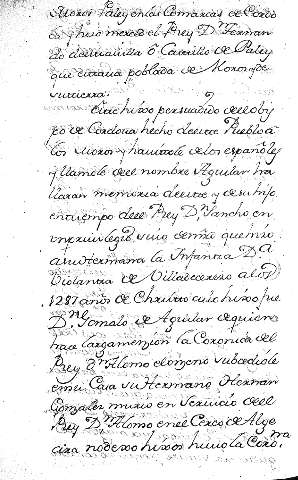 Moros Paley en las Comarcas de Cordo
va y hizo merced el Rey Dn. Fernan
do de esta villa o Castillo de Paley
que estava poblada de Moros de
su tierra.
Este hizo persuadido de el obis
po de Cordova hecho de este Pueblo a
los Moros y havitarle de los españoles
y llamole de el nombre Aguilar ha
llaran memoria de este y de su hijo
en tiempo de el Rey Dn. Sancho en
un privilegio suio de mrd. que hizo
a su Hermana la Infanta Da.
Violante de Villabecerro año
1287 años de Christo cuio hixo fue
Dn. Gonzalo de Aguilar de quien
hace larga mención la Coronica del
Rey Dn. Alonso el onzeno subcediole
en su Casa su Hermano Hernan
Gonzalez murio en Servicio de el
Rey Dn. Alonso en el Cerco de Alge
cira no dexo hixos huvo la Coro.na